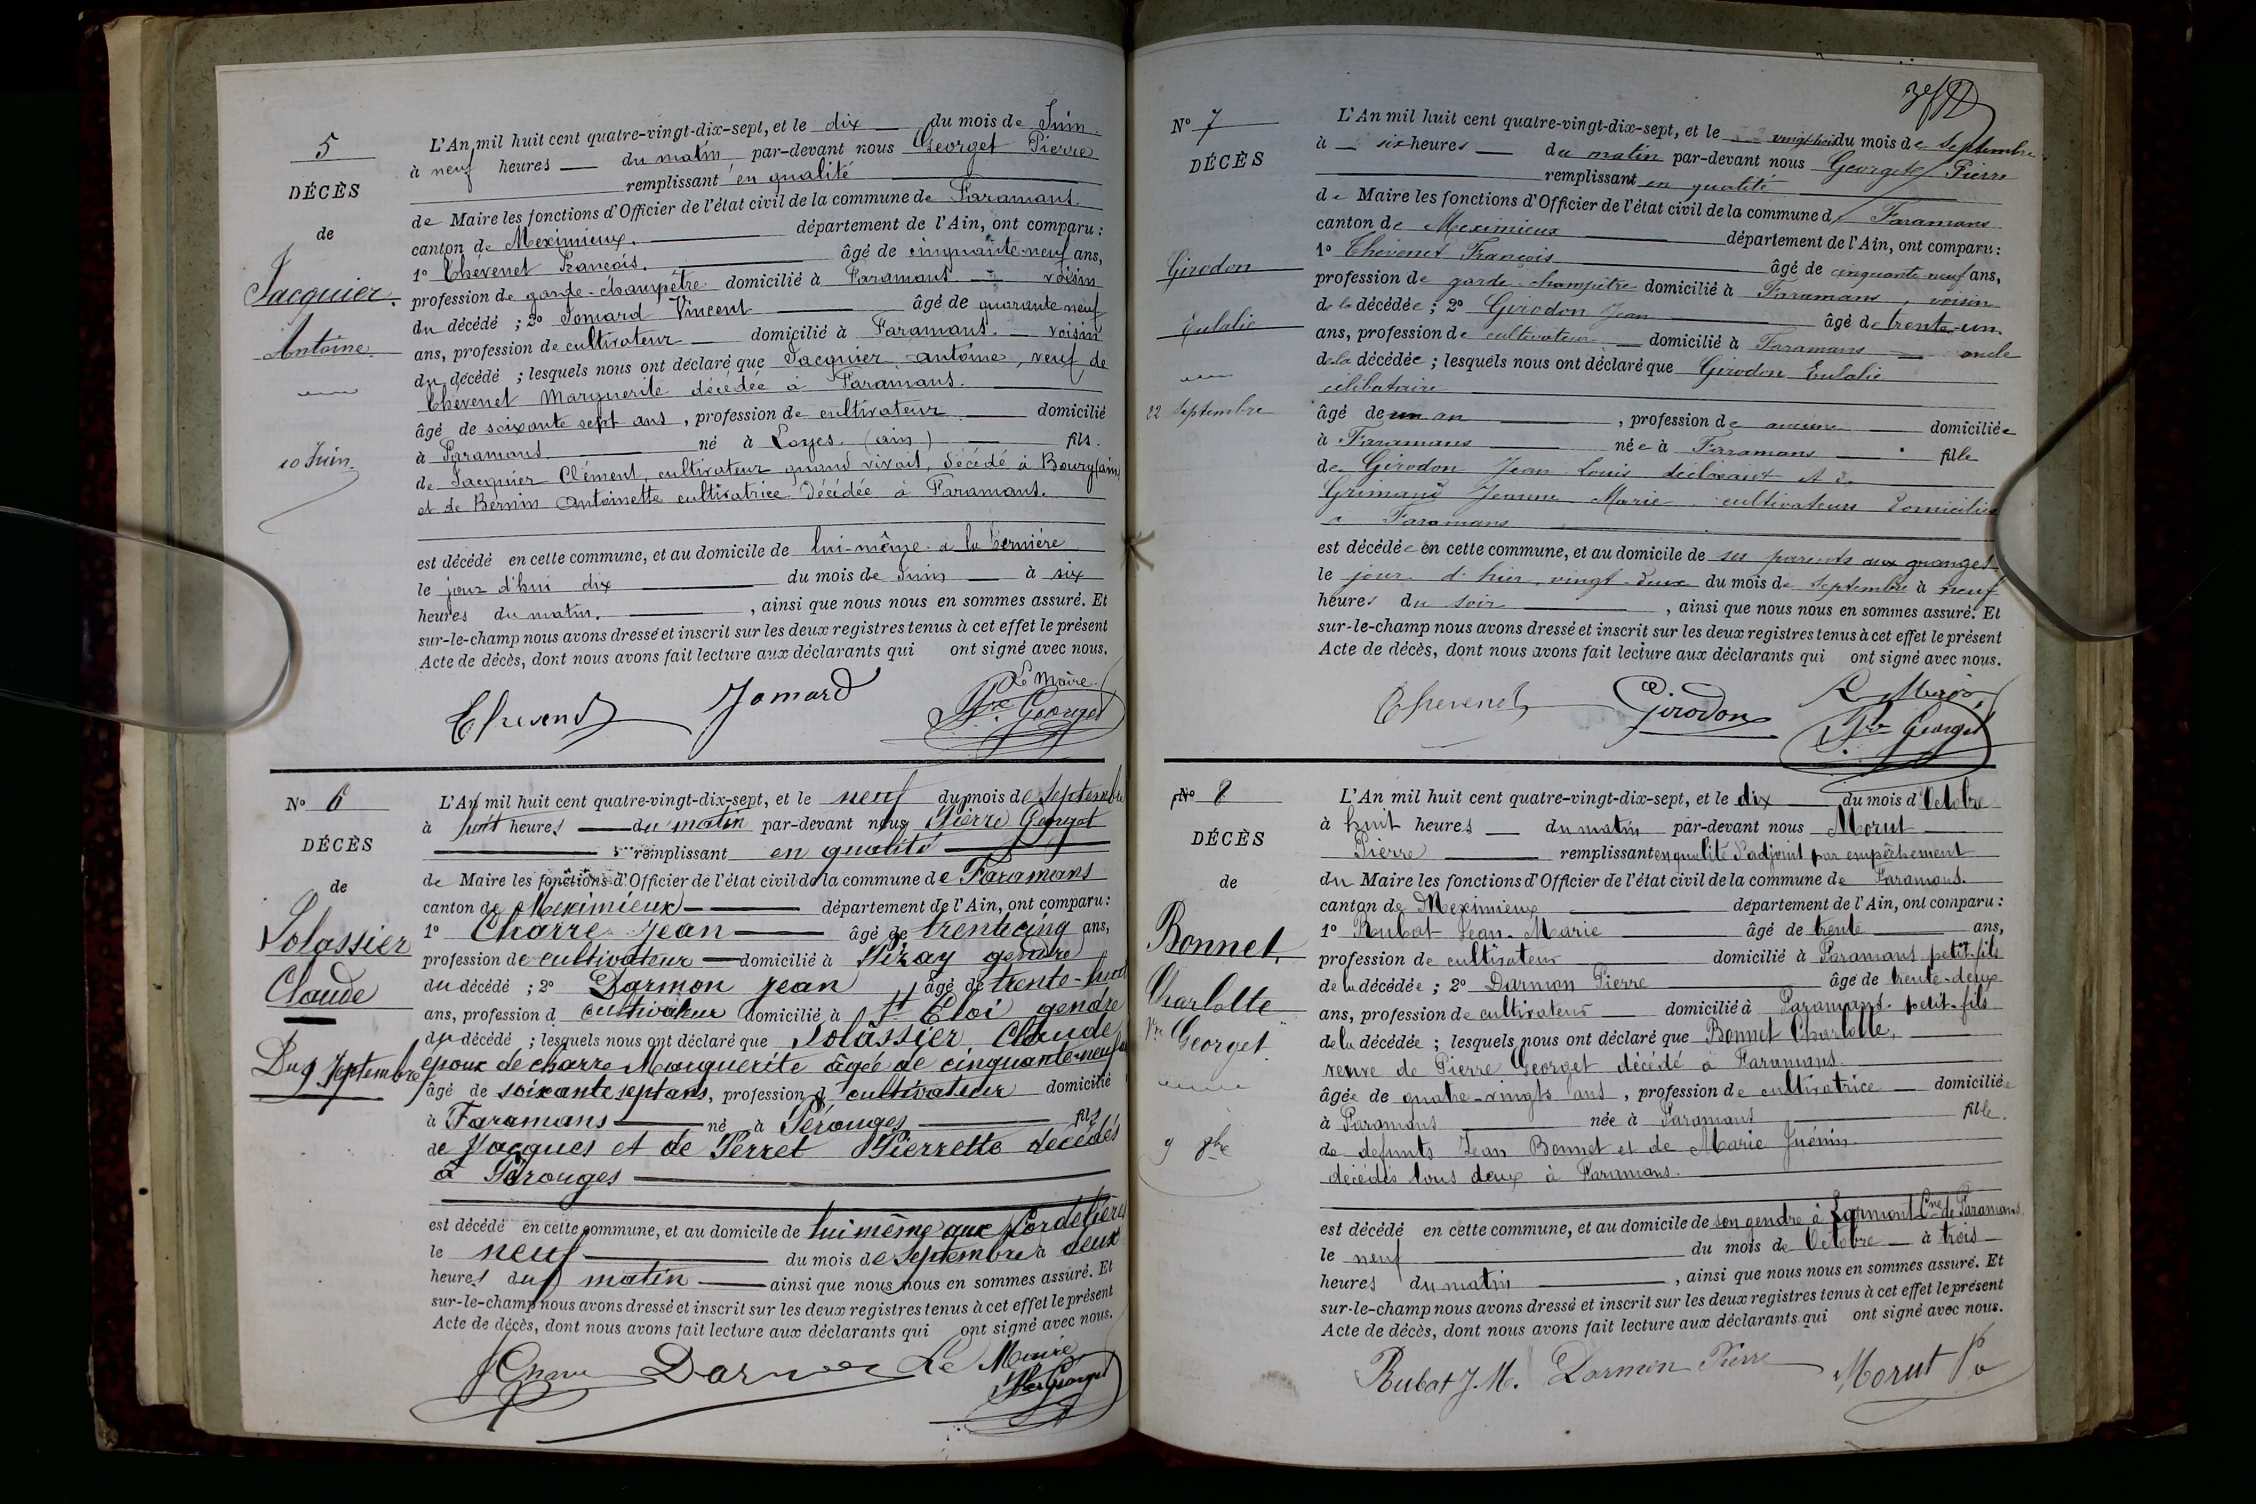 5
DÉCÈS
de
Jacquier
Antoine
10 Juin
L'An mil huit cent quatre-vingt-dix-sept, et le dix du mois de Juin
à neuf heures du matin par-devant nous Georget Pierre
remplissant en qualité
de Maire les fonctions d'Officier de l'état civil de la commune de Faramans
canton de Meximieux. département de l'Ain, ont comparu :
1º Chévenet François. âgé de cinquante-neuf ans,
profession de garde-champêtre domicilié à Faramans voisin
du décédé ; 2º Jomard Vincent âgé de quarante neuf
ans, profession de cultivateur domicilié à Faramans. voisin
du décédé ; lesquels nous ont déclaré que Jacquier antoine, veuf de
Chévenet Marguerite décédée à Faramans.
âgé de soixante sept ans, profession de cultivateur domicilié
à Faramans né à Loyes. (ain) fils.
de Jacquier Clément, cultivateur quand vivait, décédé à Bourg (ain)
et de Bernin Antoinette cultivatrice décédée à Faramans.
est décédé en cette commune, et au domicile de lui-même à la
le jour d'hui dix du mois de Juin à six
heures du matin. , ainsi que nous nous en sommes assuré. Et
sur-le-champ nous avons dressé et inscrit sur les deux registres tenus à cet effet le présent
Acte de décès, dont nous avons fait lecture aux déclarants qui ont signé avec nous.
Le Maire
Chevenet Jomard Pre Georget
Nº 6
DÉCÈS
de
Solassier
Claude
Du 9 Septembre
L'An mil huit cent quatre-vingt-dix-sept, et le neuf du mois de Septembre
à huit heures du matin par-devant nous Pierre Georget
remplissant en qualité
de Maire les fonctions d'Officier de l'état civil de la commune de Faramans
canton de Meximieux département de l'Ain, ont comparu :
1º Charre Jean âgé de trente cinq ans,
profession de cultivateur domicilié à Pizay gendre
du décédé ; 2º Darmon Jean âgé de trente-huit
ans, profession d cultivateur domicilié à St Eloi gendre
du décédé ; lesquels nous ont déclaré que Solassier Claude
époux de charre Marguerite âgée de cinquante-neuf
âgé de soixante sept ans, profession d cultivateur domicilié
à Faramans né à Pérouges fils
de Jacques et de Perret Pierrette décédés
à Pérouges
est décédé en cette commune, et au domicile de lui même aux Cordelières
le neuf du mois de Septembre à deux
heures du matin ainsi que nous nous en sommes assuré. Et
sur-le-champ nous avons dressé et inscrit sur les deux registres tenus à cet effet le présent
Acte de décès, dont nous avons fait lecture aux déclarants qui ont signé avec nous.
Charre Darmon Le Maire
Pierre Georget
Nº 7
DÉCÈS
Girodon
Eulalie
22 Septembre
L'An mil huit cent quatre-vingt-dix-sept, et le vingt trois du mois de Septembre
à six heures du matin par-devant nous Georget Pierre
remplissant en qualité
de Maire les fonctions d'Officier de l'état civil de la commune d Faramans
canton de Meximieux département de l'Ain, ont comparu :
1º Chevenet François âgé de cinquante-neuf ans,
profession de garde-champêtre domicilié à Faramans, voisin
de la décédée ; 2º Girodon Jean âgé de trente-un
ans, profession de cultivateur domicilié à Faramans oncle
de la décédée ; lesquels nous ont déclaré que Girodon Eulalie
célibataire
âgé de un an , profession de aucune domiciliée
à Faramans née à Faramans fille
de Girodon Jean Louis déclarant et de
Grimand Jeanne Marie cultivateurs domiciliés
à Faramans
est décédée en cette commune, et au domicile de ses parents aux granges
le jour d'hier vingt-deux du mois de Septembre à neuf
heures du soir , ainsi que nous nous en sommes assuré. Et
sur-le-champ nous avons dressé et inscrit sur les deux registres tenus à cet effet le présent
Acte de décès, dont nous avons fait lecture aux déclarants qui ont signé avec nous.
Chevenet Girodon Le Maire
Pre Georget
Nº 8
DÉCÈS
de
Bonnet
Charlotte
Vve Georget
9 8bre
L'An mil huit cent quatre-vingt-dix-sept, et le dix du mois d'Octobre
à huit heures du matin par-devant nous Morut
Pierre remplissant en qualité d'adjoint par empêchement
du Maire les fonctions d'Officier de l'état civil de la commune de Faramans.
canton de Meximieux département de l'Ain, ont comparu :
1º Rubat Jean-Marie âgé de trente ans,
profession de cultivateur domicilié à Faramans petit-fils
de la décédée ; 2º Darmon Pierre âgé de trente-deux
ans, profession de cultivateur domicilié à Faramans. petit-fils
de la décédée ; lesquels nous ont déclaré que Bonnet Charlotte,
veuve de Pierre Georget décédé à Faramans.
âgée de quatre-vingts ans, profession de cultivatrice domiciliée
à Faramans née à Faramans fille.
de défunts Jean Bonnet et de Marie Juénin
décédés tous deux à Faramans.
est décédé en cette commune, et au domicile de son gendre à Cne de Faramans
le neuf du mois de Octobre à trois
heures du matin , ainsi que nous nous en sommes assuré. Et
sur-le-champ nous avons dressé et inscrit sur les deux registres tenus à cet effet le présent
Acte de décès, dont nous avons fait lecture aux déclarants qui ont signé avec nous.
Rubat J.M. Darmon Pierre Morut